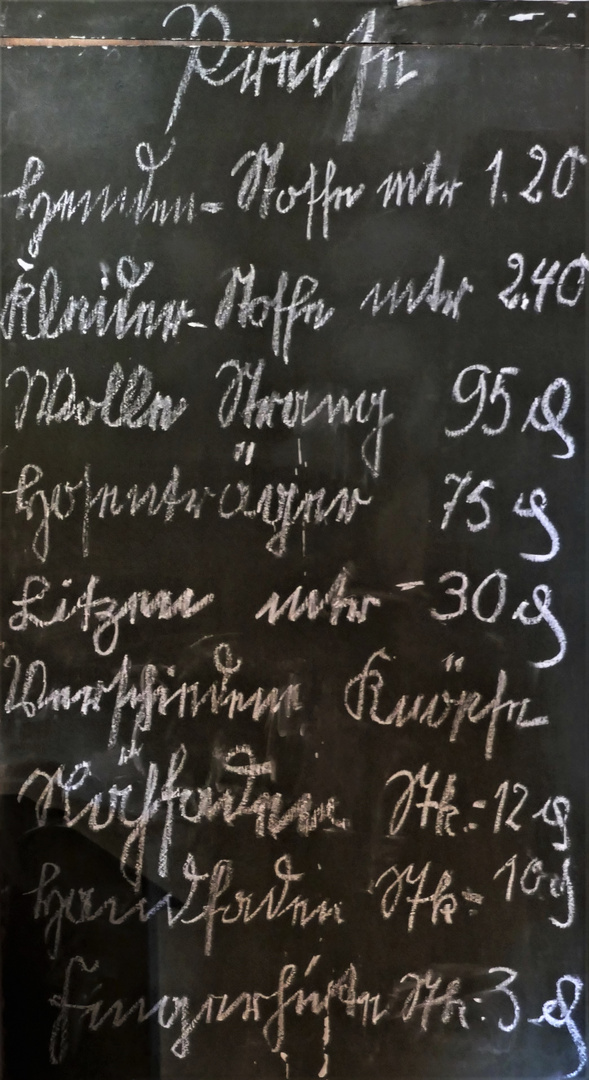 Preise
Hemden-Stoffe mtr 1.20
Kleider-Stoffe mtr 2.40
Wolle Strang 95 ₰
Hosenträger 75 ₰
Litzen mtr -30 ₰
Verschiedene Knöpfe
Nähfaden Stk.-12 ₰
Handfaden Stk- 10 ₰
Fingerhüte Stk.-3 ₰